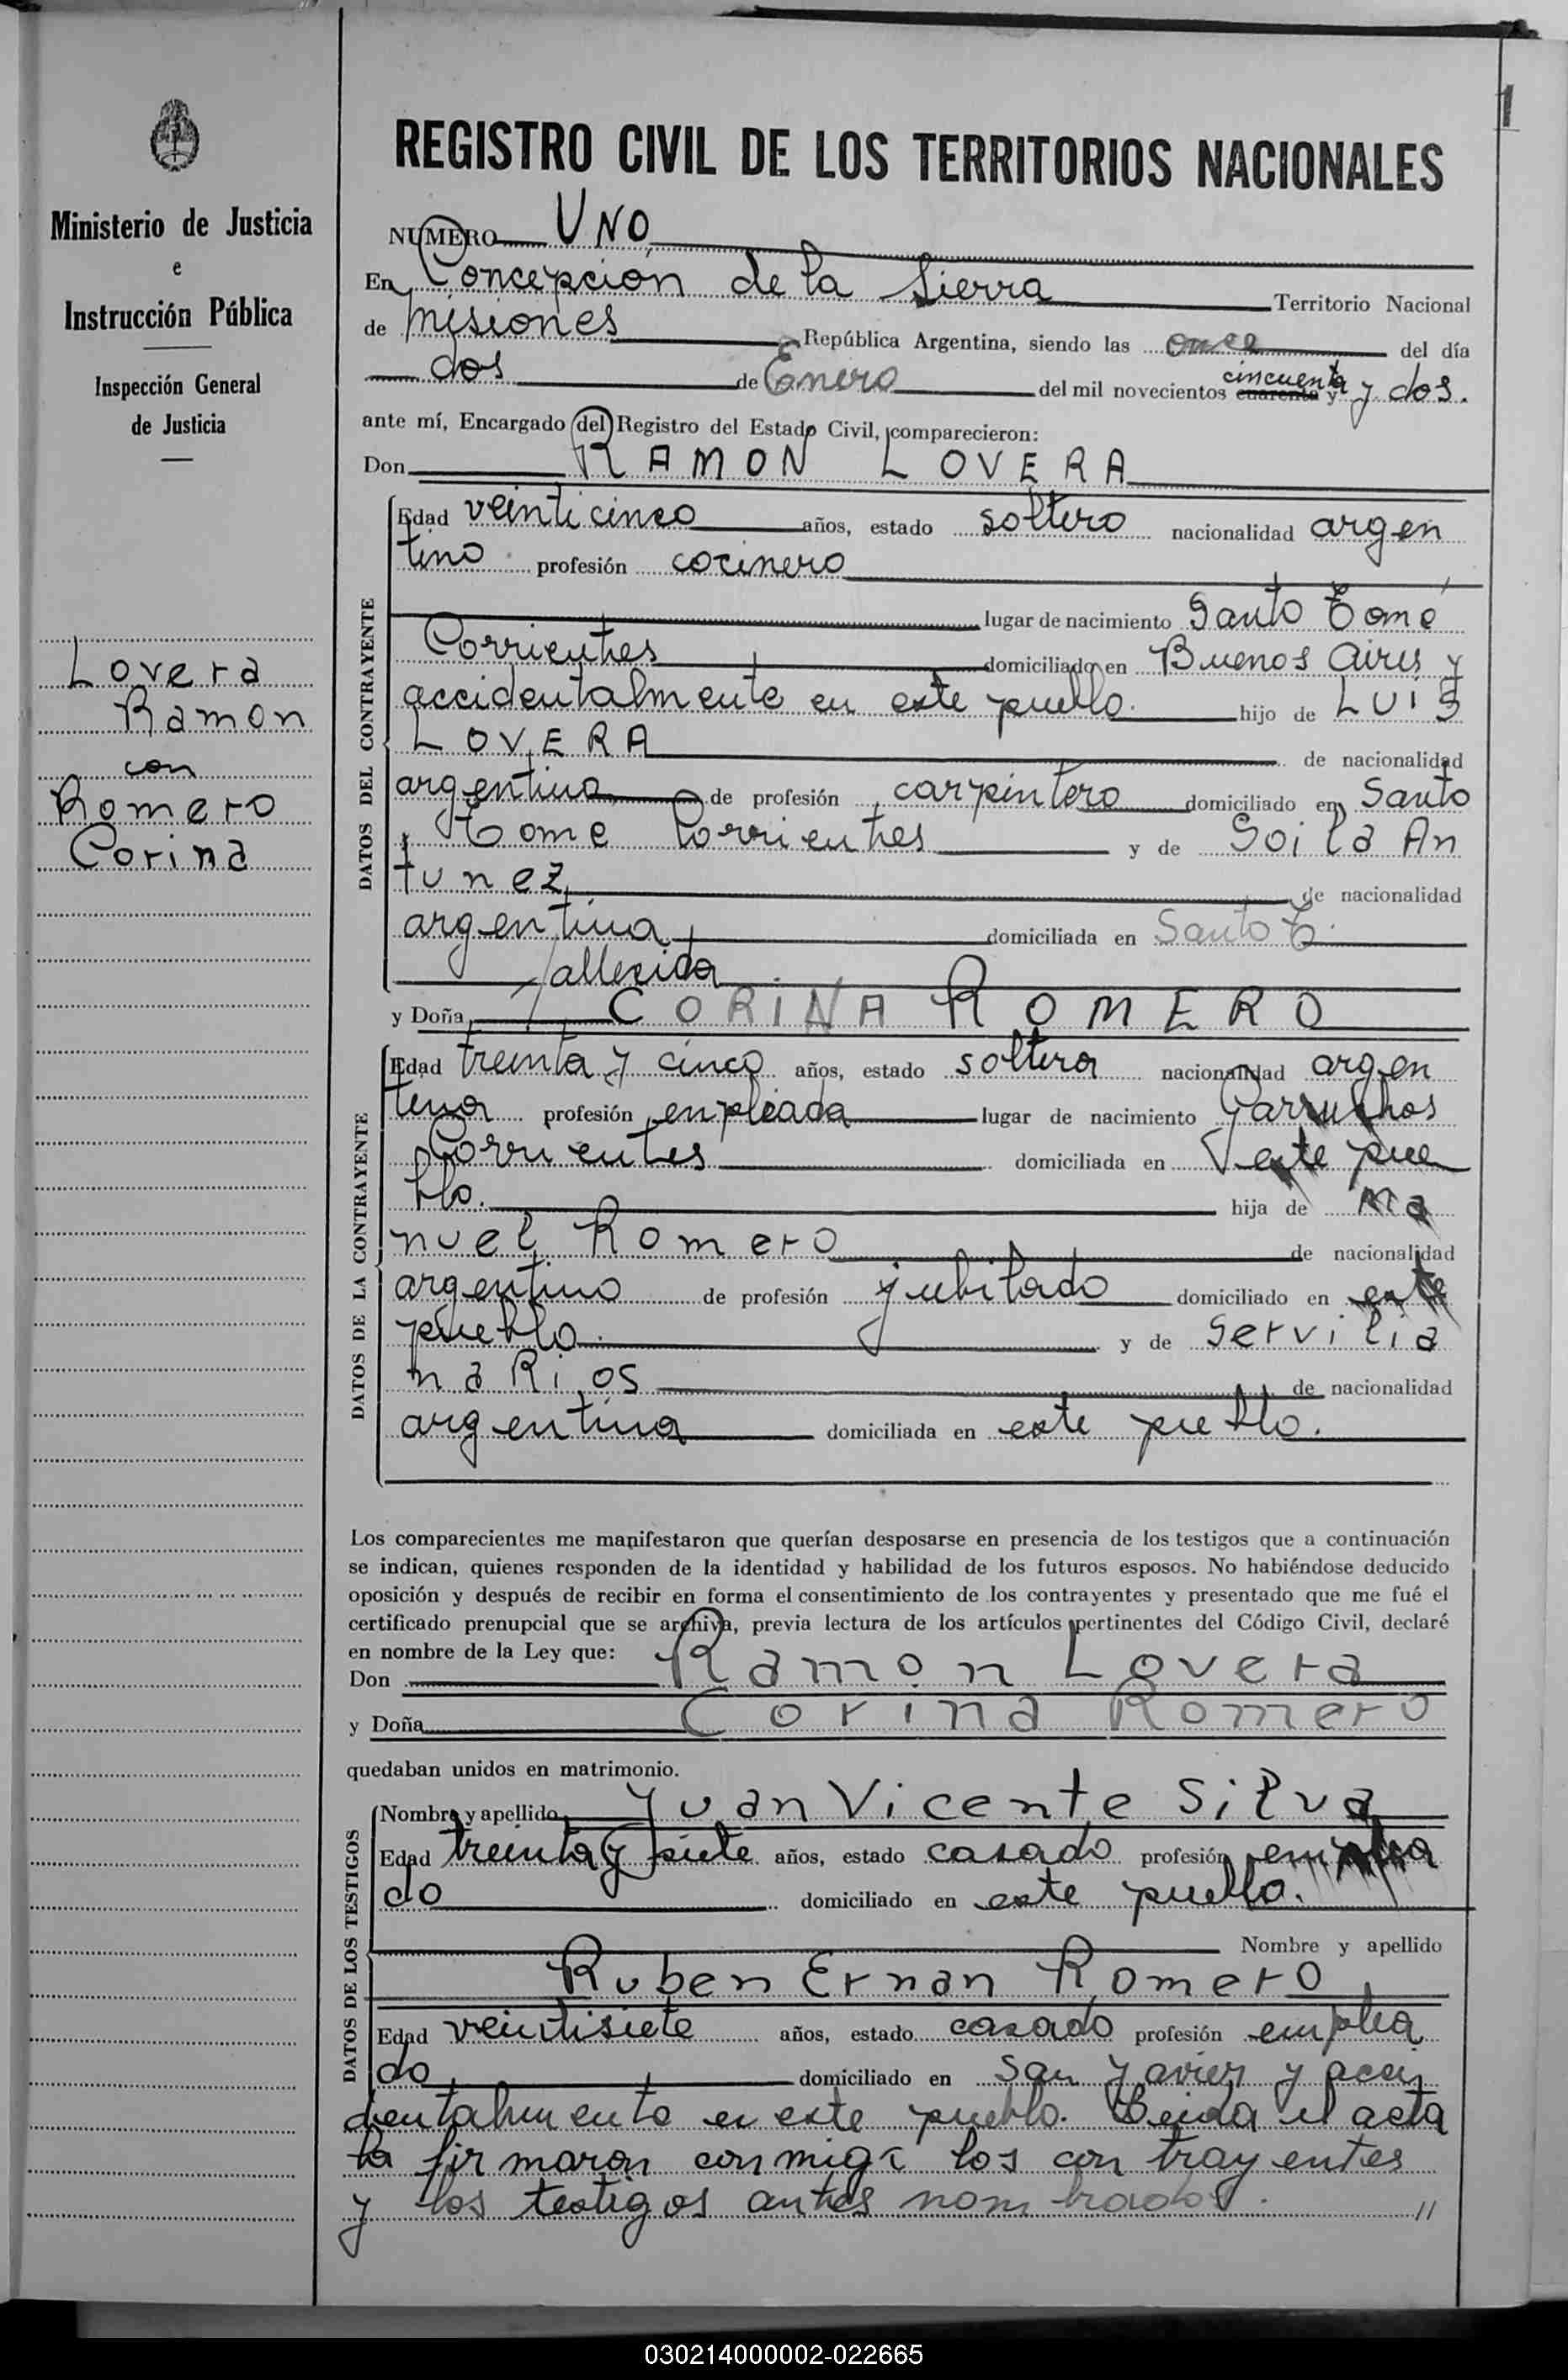 1
REGISTRO CIVIL DE LOS TERRITORIOS NACIONALES
Ministerio de Justicia
e
Instrucción Pública
Inspección General
de Justicia
Lovera
Ramon
con
Romero
Corina
NUMERO UNO
En Concepción de la Sierra Territorio Nacional
de misiones República Argentina, siendo las once del día
dos de Enero del mil novecientos cuarenta y cincuenta y dos.
ante mí, Encargado del Registro del Estado Civil, comparecieron:
Don RAMON LOVERA
DATOS DEL CONTRAYENTE
Edad veinticinco años, estado soltero nacionalidad argen
tino profesión cocinero
lugar de nacimiento Santo Tomé
Corrientes domiciliado en Buenos Aires y
accidentalmente en este pueblo. hijo de LUIS
LOVERA de nacionalidad
argentina de profesión carpintero domiciliado en Santo
Tome Corrientes y de Soila An
tunez de nacionalidad
argentina domiciliada en Santo T.
fallecida
y Doña CORINA ROMERO
DATOS DE LA CONTRAYENTE
Edad treinta y cinco años, estado soltera nacionalidad argen
tina profesión enpleada lugar de nacimiento Garruchos
Corrientes domiciliada en este pue
blo. hija de Ma
nuel Romero de nacionalidad
argentino de profesión jubilado domiciliado en este
pueblo. y de Servilia
na Rios de nacionalidad
argentina domiciliada en este pueblo.
Los comparecientes me manifestaron que querían desposarse en presencia de los testigos que a continuación
se indican, quienes responden de la identidad y habilidad de los futuros esposos. No habiéndose deducido
oposición y después de recibir en forma el consentimiento de los contrayentes y presentado que me fué el
certificado prenupcial que se archiva, previa lectura de los artículos pertinentes del Código Civil, declaré
en nombre de la Ley que:
Don Ramon Lovera
y Doña Corina Romero
quedaban unidos en matrimonio.
DATOS DE LOS TESTIGOS
Nombre y apellido Juan Vicente Silva
Edad treinta y siete años, estado casado profesión emplea
do domiciliado en este pueblo.
Nombre y apellido
Ruben Ernan Romero
Edad veintisiete años, estado casado profesión emplea
do domiciliado en San Javier y acci
dentalmente en este pueblo. Leida el acta
la firmaron conmigo los contrayentes
y los testigos antes nombrados. "
030214000002-022665